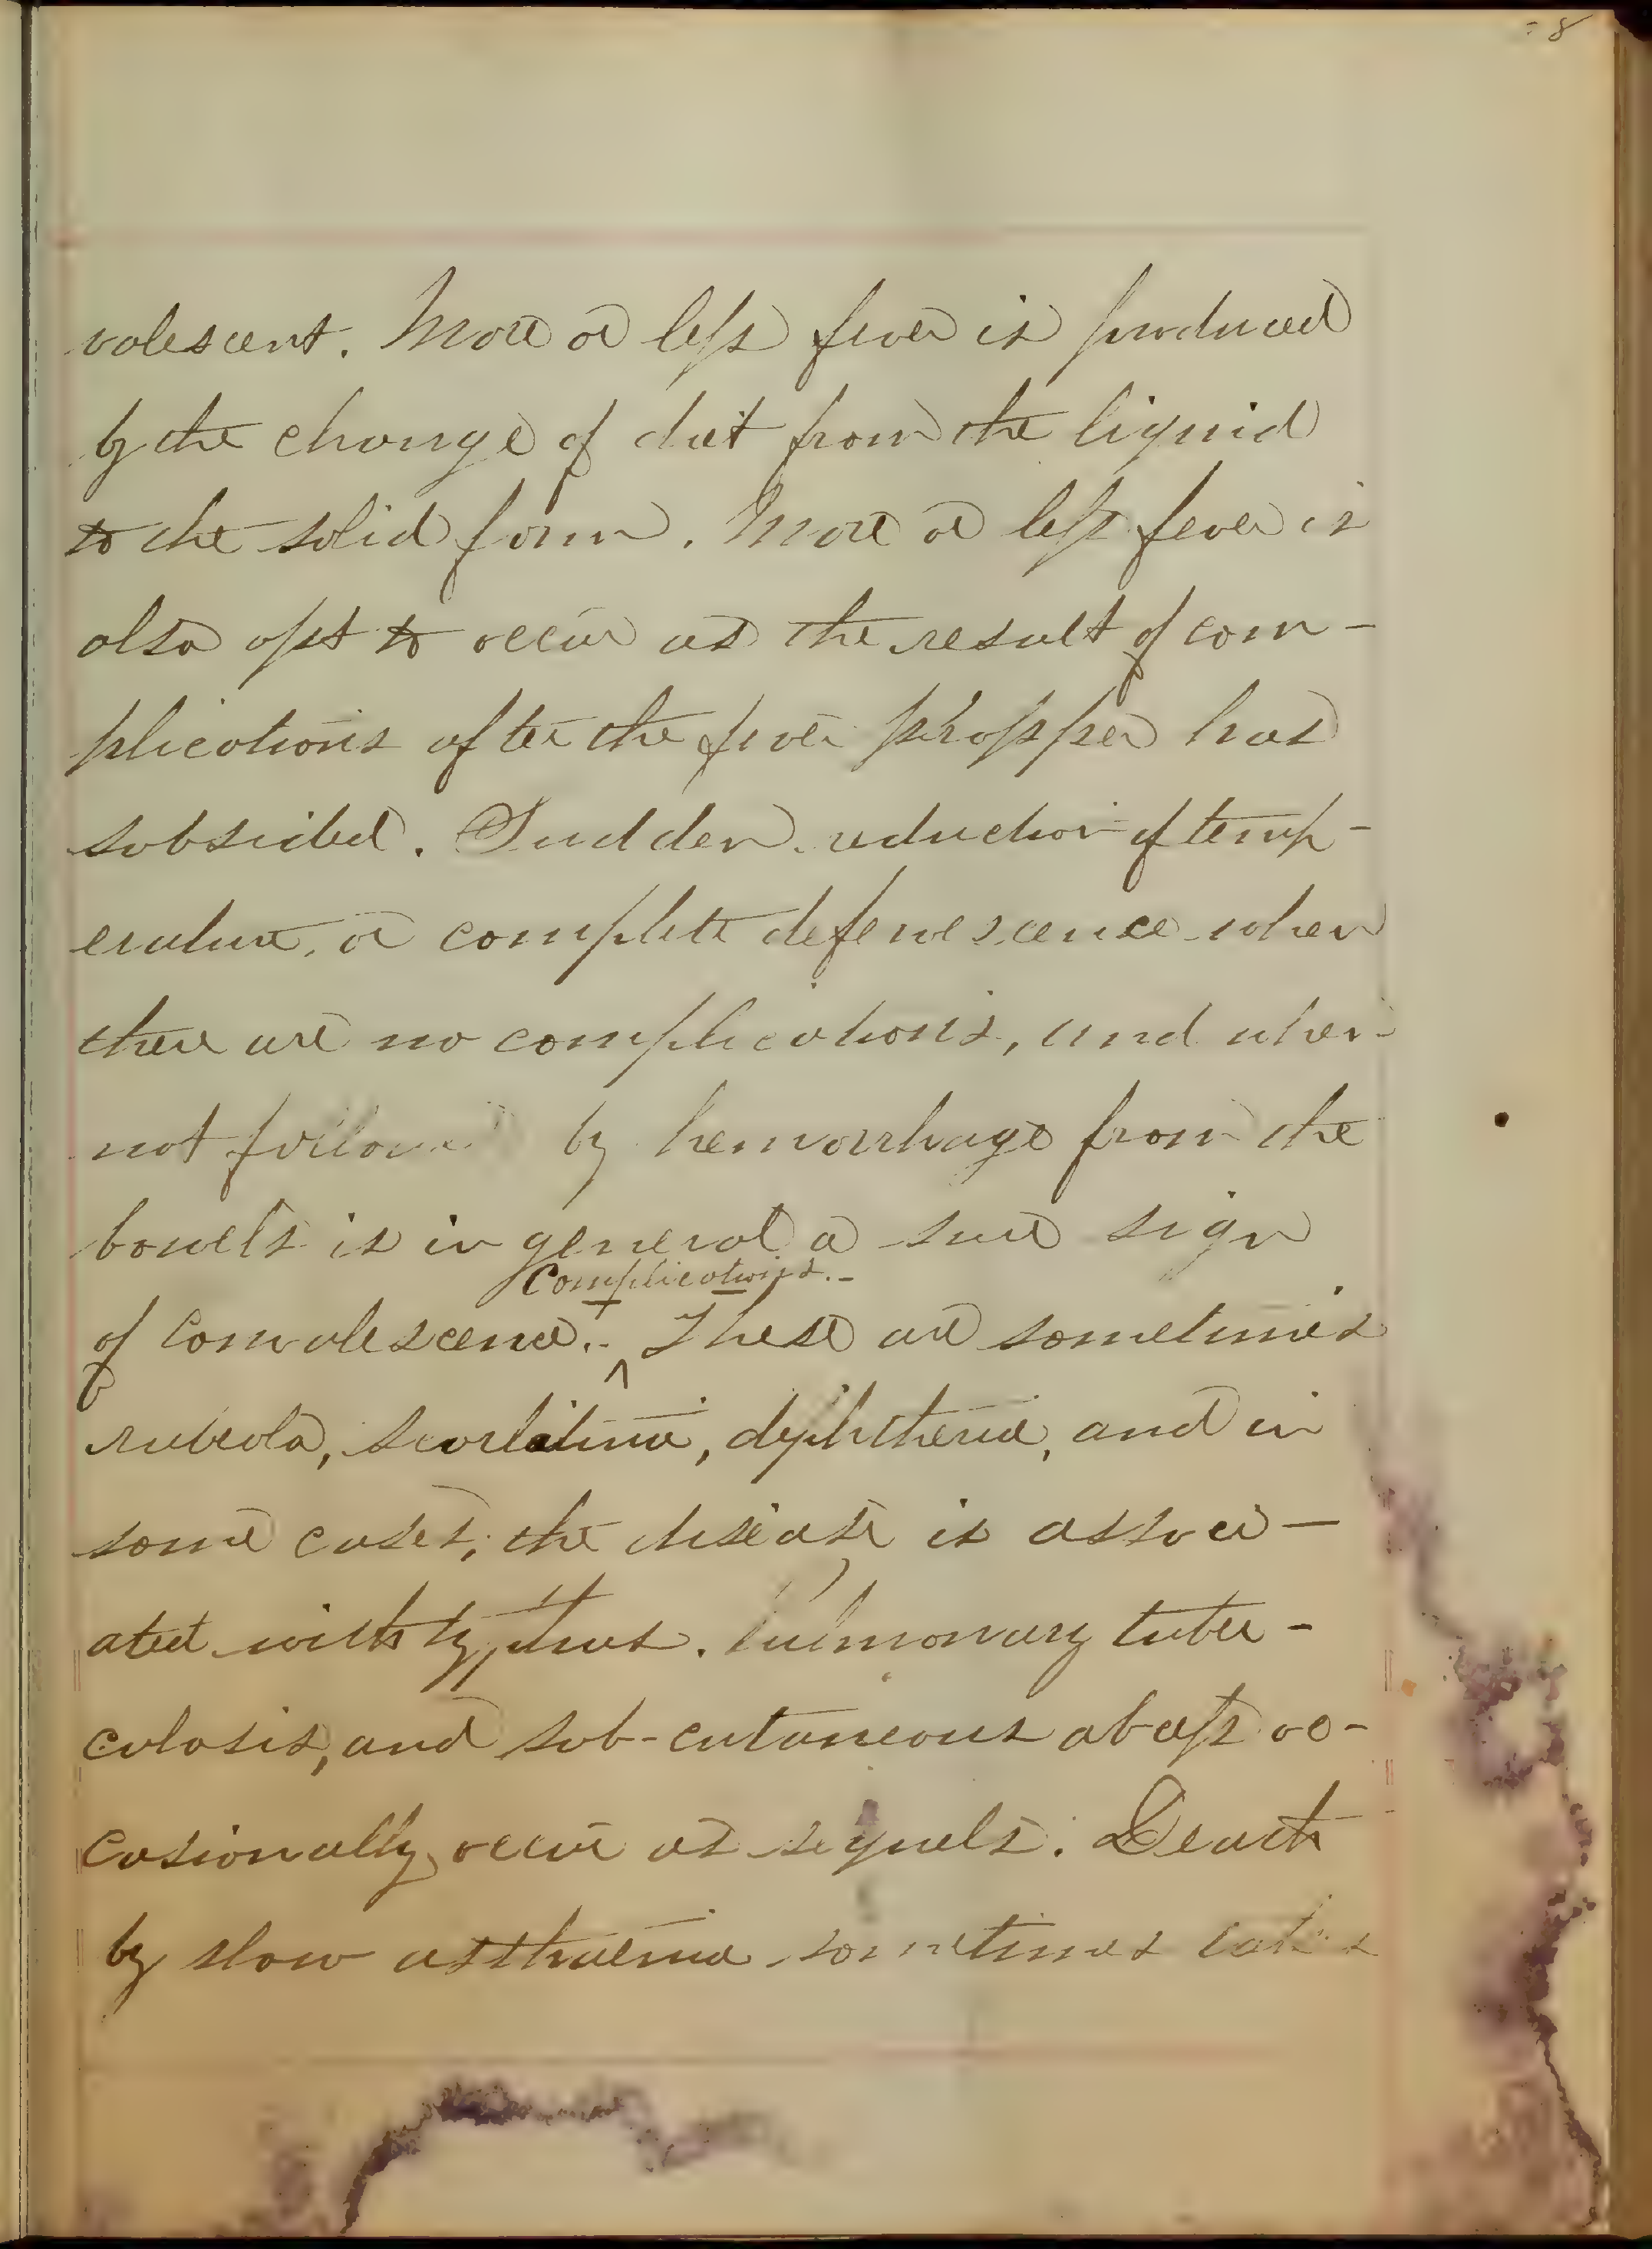 8
valescent. More or less fever is produced
by the change of diet from the liquid
to the solid form. More or less fever is
also apt to occur as the result of com-
plications after the fever propper has
subsided. Sudden reduction of temp-
erature, or complete defervescence when
there are no complications, and when
not followed by hemorrhage from the
bowels is in general a sure sign
Complications.-
of convalescence.- ^ These are sometimes
rubeola, scarlatina, diphtheria, and in
some cases, the disease is associ-
ated with typhus. Pulmonary tuber-
culosis, and sub-cutaneous abcess oc-
casionally occur as sequels. Death
by slow asthaenia sometimes takes